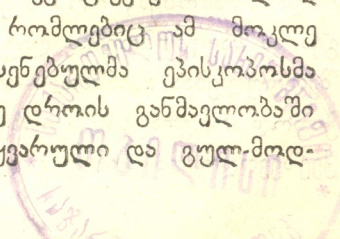 რომლებიც ამ მოკლე
სენებულმა ეპისკოპოსმა
დროის განმავლობაში
ყვარული და გულ-მოდ-